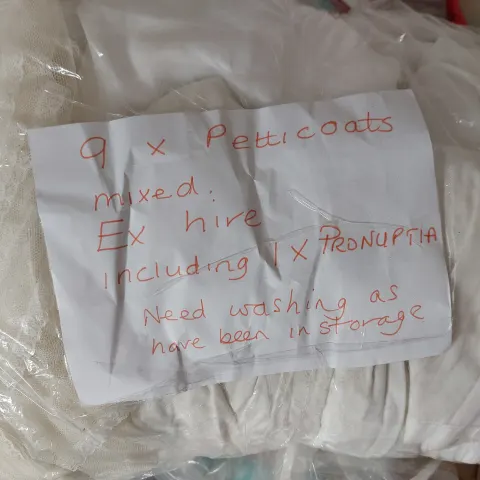 9 x Petticoats
mixed:
Ex hire
including 1 x PRONUPTIA
Need washing as
have been in storage